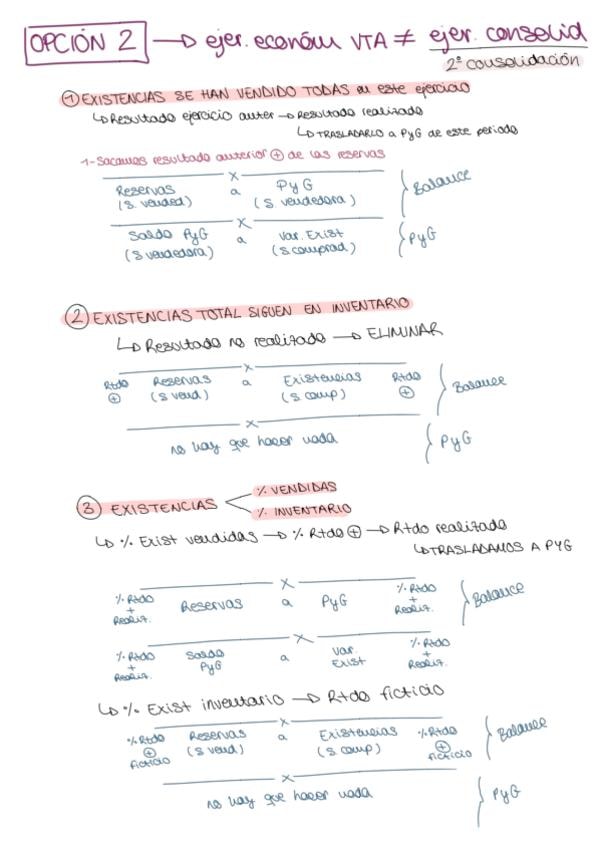 OPCIÓN 2 → ejer. económ VTA ≠ ejer. consolid
2ª consolidación
① EXISTENCIAS SE HAN VENDIDO TODAS en este ejercicio
↳ Resultado ejercicio anter → Resultado realizado
↳ TRASLADARLO a PyG de este periodo
1- Sacamos resultado anterior ⊕ de las reservas
x
Reservas a PyG
(S. vended) (S. vendedora)
Balance
x
Saldo PyG a Var. Exist
(S vendedora) (S comprad)
PyG
② EXISTENCIAS TOTAL SIGUEN EN INVENTARIO
↳ Resultado no realizado → ELIMINAR
x
Rtdo Reservas a Existencias Rtdo
⊕ (S vend) (S comp) ⊕
Balance
x
no hay que hacer nada
PyG
③ EXISTENCIAS < % VENDIDAS
% INVENTARIO
↳ % Exist vendidas → % Rtdo ⊕ → Rtdo realizado
↳ TRASLADAMOS A PYG
x
% Rtdo + Realiz. Reservas a PyG % Rtdo + Realiz.
Balance
x
% Rtdo + Realiz. Saldo PyG a Var. Exist % Rtdo + Realiz.
↳ % Exist inventario → Rtdo ficticio
x
% Rtdo Reservas a Existencias % Rtdo
⊕ (S vend) (S comp) ⊕
ficticio ficticio
Balance
x
no hay que hacer nada
PyG